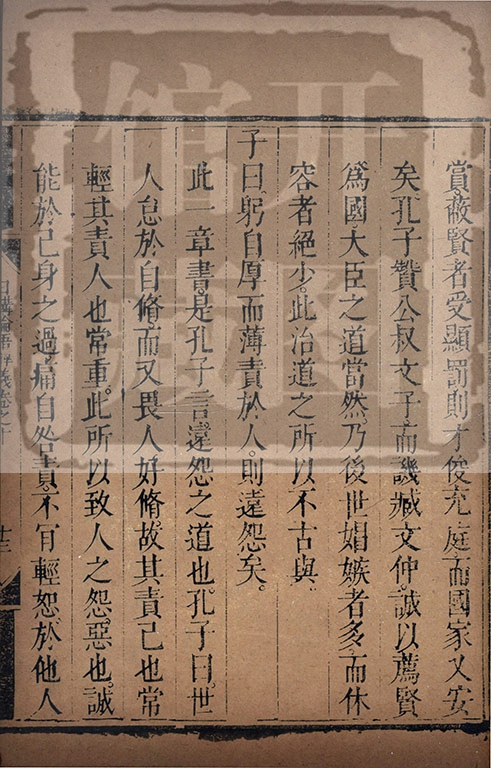 賞。蔽賢者受顯罰則才俊充庭而國家乂安
矣孔子贊公叔文子而譏臧文仲。誠以薦賢
爲國大臣之道當然。乃後世娼嫉者多而休
容者絕少。此治道之所以不古與。
子曰。躬自厚而薄責於人。則遠怨矣。
此一章書。是孔子言遠怨之道也。孔子曰。世
人怠於自脩。而又畏人好脩。故其責己也常
輕。其責人也常重。此所以致人之怨惡也。誠
能於己身之過。痛自咎責。不肯輕恕。於他人
日講論語解義卷之十
十三